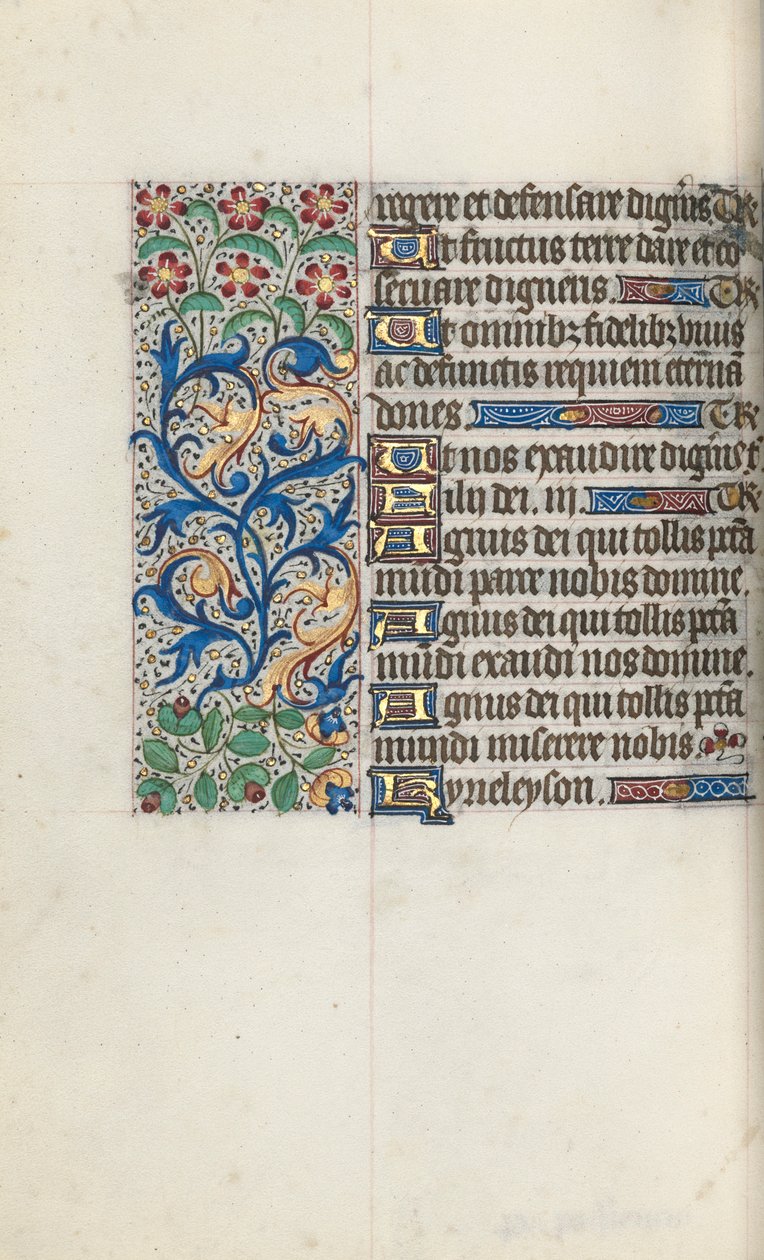 regere et defensare digneris Te R
Ut fructus terre dare et co
seruare digneris. Te R
Ut omnibz fidelibz viuis
ac defunctis requiem eternā
dones Te R
Ut nos exaudire digneris t.
Filij dei. iij. Te R
Agnus dei qui tollis pctā
mūdi parce nobis domine.
Agnus dei qui tollis pctā
mūdi exaudi nos domine.
Agnus dei qui tollis pctā
mundi miserere nobis
Kyrieleyson.